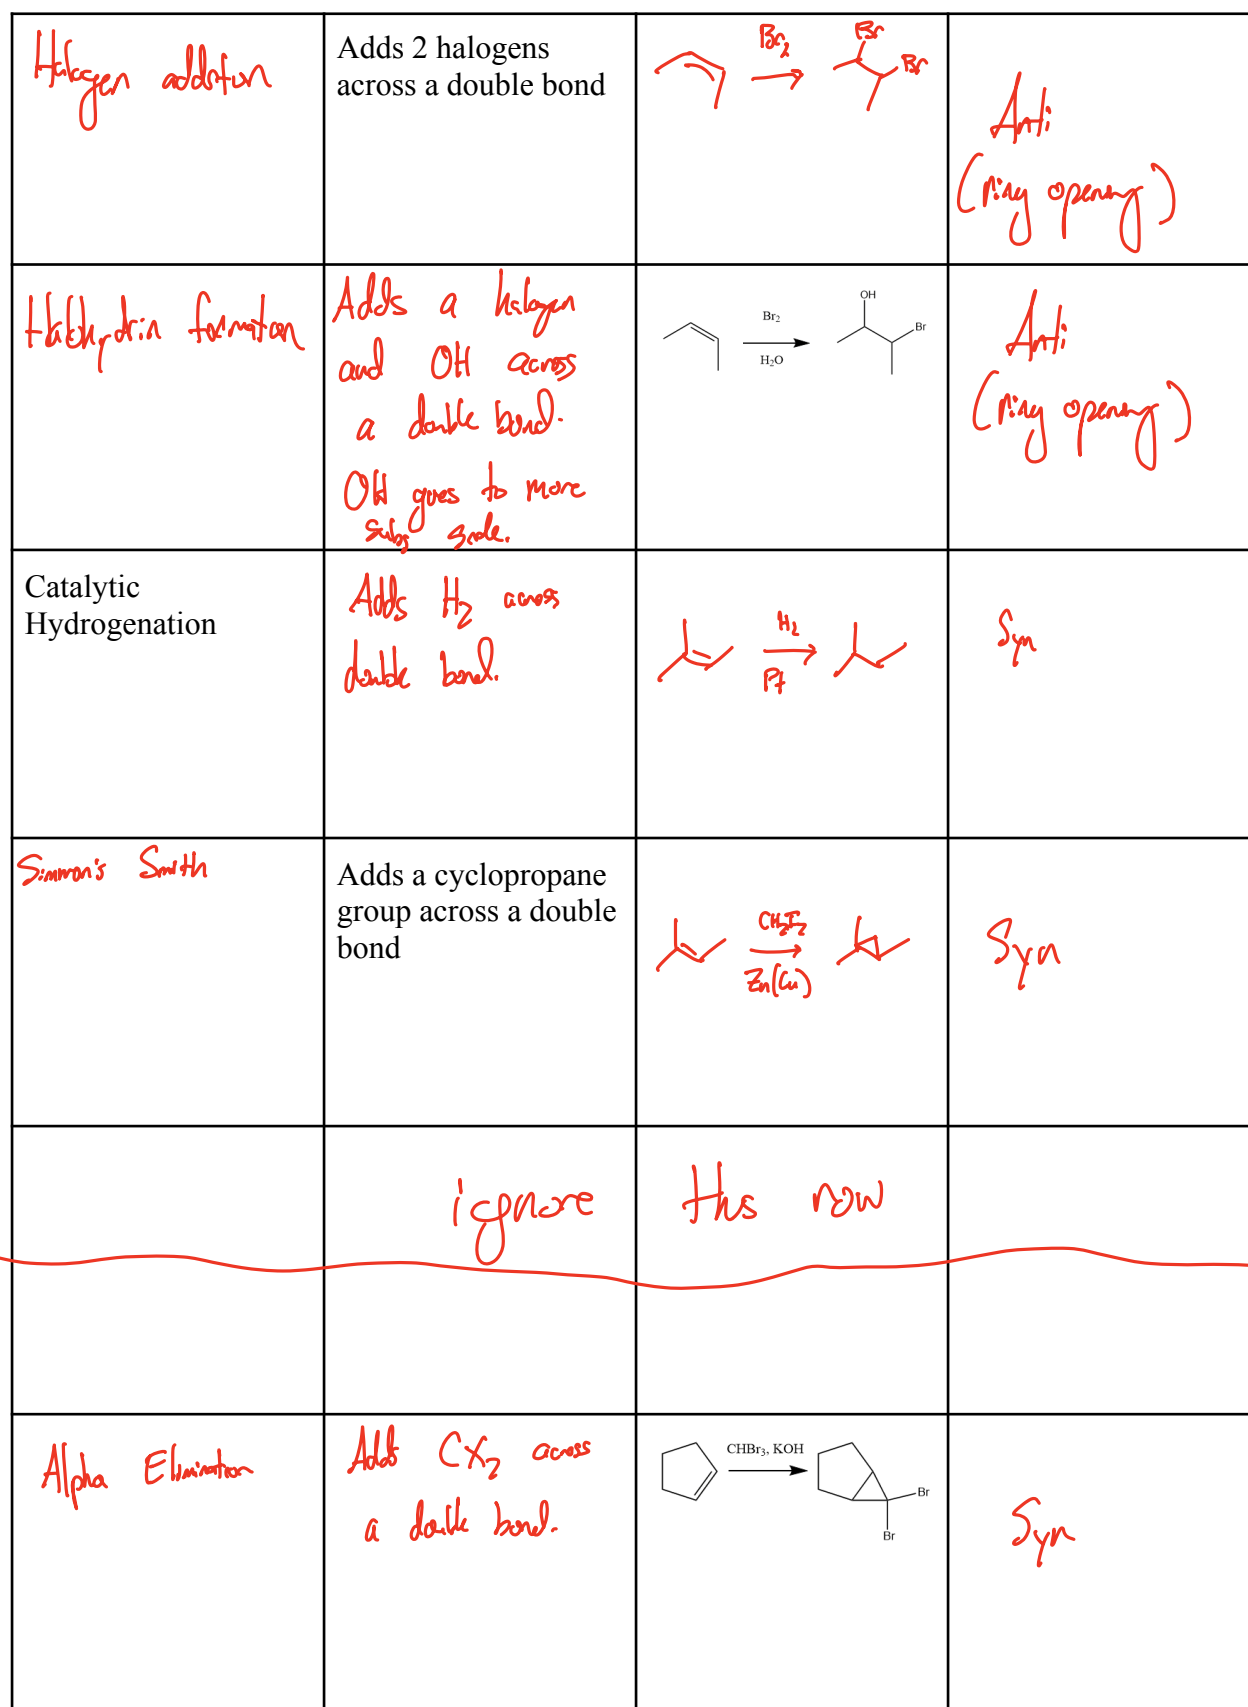 Halogen addition
Adds 2 halogens
across a double bond
Br2
Br
Br
Anti
(ring opening)
Halohydrin formation
Adds a halogen
and OH across
a double bond.
OH goes to more
subs side.
Br2
H2O
OH
Br
Anti
(ring opening)
Catalytic
Hydrogenation
Adds H2 across
double bond.
H2
Pt
Syn
Simmon's Smith
Adds a cyclopropane
group across a double
bond
CH2I2
Zn(Cu)
Syn
ignore this row
Alpha Elimination
Adds CX2 across
a double bond.
CHBr3, KOH
Br
Br
Syn